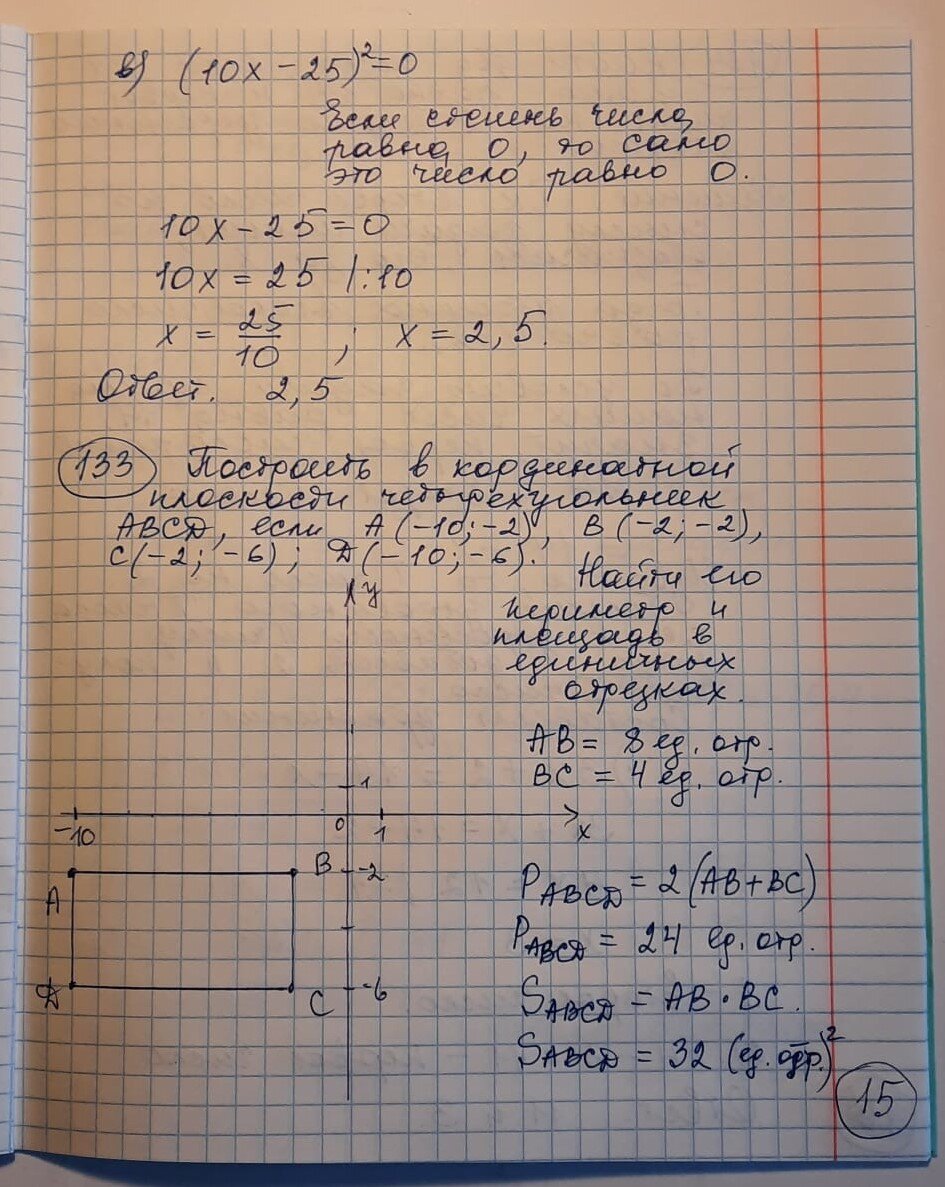 в) (10x − 25)² = 0
Если степень числа
равна 0, то само
это число равно 0.
10x − 25 = 0
10x = 25 | : 10
x = 25/10 ; x = 2,5.
Ответ. 2,5
133 Построить в кординатной
плоскости четырехугольник
ABCD, если A (−10; −2), B (−2; −2),
C (−2; −6); D (−10; −6).
Найти его
периметр и
площадь в
единичных
отрезках.
y
AB = 8 ед. отр.
BC = 4 ед. отр.
1
−10 0 1 x
A B −2
D C −6
P ABCD = 2 (AB + BC)
P ABCD = 24 ед. отр.
S ABCD = AB · BC.
S ABCD = 32 (ед. отр.)²
15